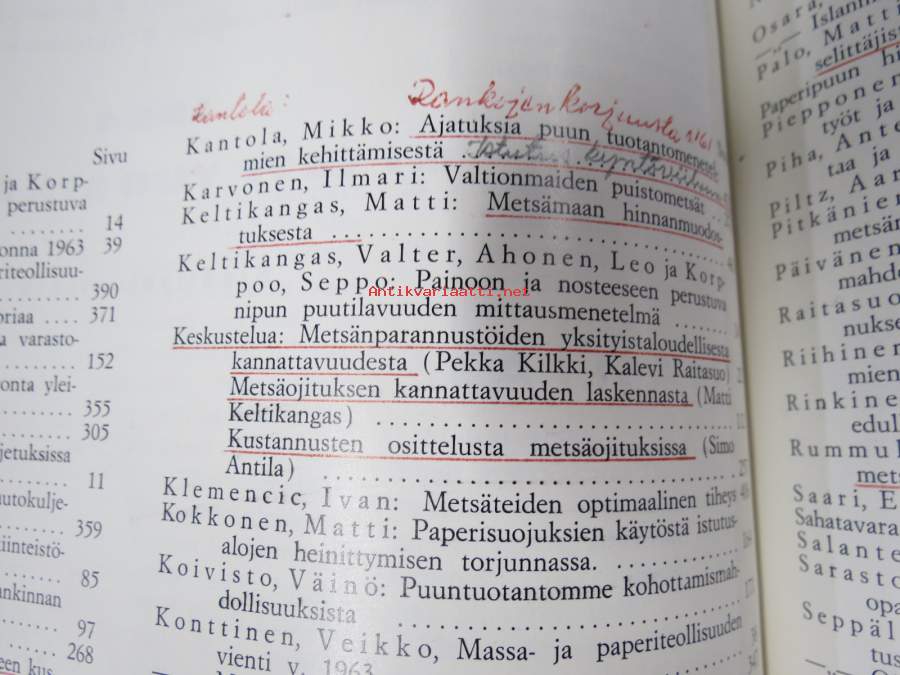 Sivu
ja Korp-
perustuva
........ 14
onna 1963 39
riteollisuu-
........ 390
oriaa .... 371
a varasto-
........ 152
onta ylei-
........ 355
........ 305
jetuksissa
........ 11
utokulje-
........ 359
iinteistö-
........ 85
ankinnan
........ 97
........ 268
een kus-
Kantola: Rankojen korjuusta
Kantola, Mikko: Ajatuksia puun tuotantomenetel-
mien kehittämisestä
Karvonen, Ilmari: Valtionmaiden puistometsät
Keltikangas, Matti: Metsämaan hinnanmuodos-
tuksesta ........
Keltikangas, Valter, Ahonen, Leo ja Korp-
poo, Seppo: Painoon ja nosteeseen perustuva
nipun puutilavuuden mittausmenetelmä ........
Antikvariaatti.net
Keskustelua: Metsänparannustöiden yksityistaloudellisesta
kannattavuudesta (Pekka Kilkki, Kalevi Raitasuo)
Metsäojituksen kannattavuuden laskennasta (Matti
Keltikangas) ........
Kustannusten osittelusta metsäojituksissa (Simo
Antila) ........
Klemencic, Ivan: Metsäteiden optimaalinen tiheys
Kokkonen, Matti: Paperisuojuksien käytöstä istutus-
alojen heinittymisen torjunnassa. ........
Koivisto, Väinö: Puuntuotantomme kohottamismah-
dollisuuksista ........
Konttinen, Veikko, Massa- ja paperiteollisuuden
vienti v. 1963
Osara,
—„— Islannin
Palo, Matti
selittäjist
Paperipuun hi
Piepponen
työt ja
Piha, Ante
taa ja
Piltz, Aar
Pitkänier
metsän
Päivänen
mahde
Raitasuo
nukse
Riihinen
mien
Rinkine
edull
Rummuk
mets
Saari, E
Sahatavara
Salante
Sarasto
opa
Seppäl
tus